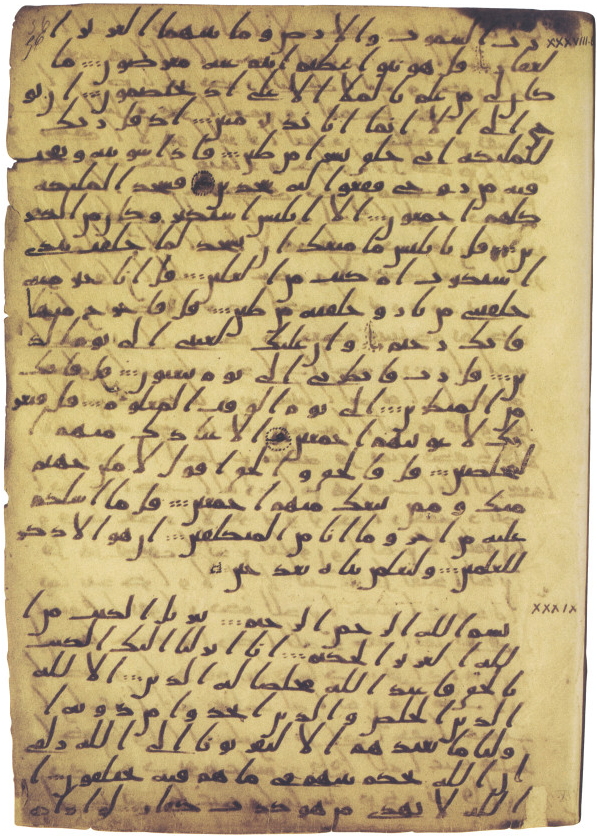 XXXVIII.6
رب السموت والارض وما بينهما العزيز ا
لغفر قل هو نبوا عظيم انتم عنه معرضون ما
كان لي من علم بالملا الاعلى اذ يختصمون ان يو
حى الي الا انما انا نذير مبين اذ قل ربك
للمليكه اني خلق بشرا من طين فاذا سويته ونفخت
فيه من روحي فقعوا له سجدين فسجد المليكه
كلهم اجمعون الا ابليس استكبر وكان من الكفر
ين قل يابليس ما منعك ان تسجد لما خلقت بيدي
استكبرت ام كنت من العلين قل انا خير منه
خلقتني من نار وخلقته من طين قل فاخرج منها
فانك رجيم وان عليك لعنتي الى يوم الد
ين قل رب فانظرني الى يوم يبعثون قل فانك
من المنظرين الى يوم الوقت المعلوم قل فبعز
تك لاغوينهم اجمعين الا عبادك منهم ا
لمخلصين قل فالحق والحق اقول لاملن جهنم
منك وممن تبعك منهم اجمعين قل ما اسلكم
عليه من اجر وما انا من المتكلفين ان هو الا ذكر
للعلمين ولتعلمن نباه بعد حين
XXXIX
بسم الله الرحمن الرحيم تنزيل الكتب من ا
لله العزيز الحكيم انا انزلنا اليك الكتب
بالحق فاعبد الله مخلصا له الدين الا لله
الدين الخلص والذين اتخذوا من دونه ا
وليا ما نعبدهم الا ليقربونا الى الله زلفى
ان الله يحكم بينهم في ما هم فيه يختلفون ا
ن الله لا يهدي من هو كذب كفار لو اراد